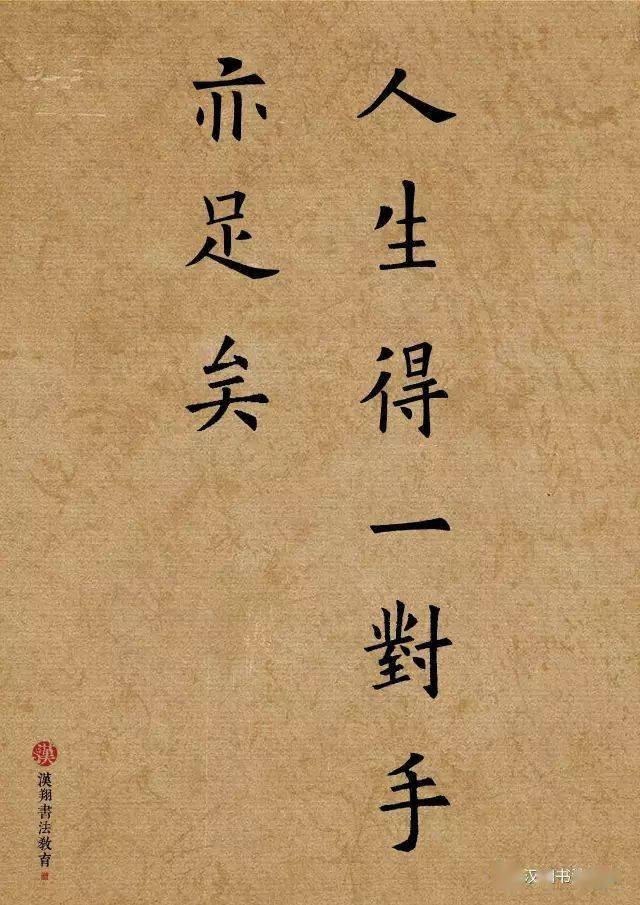 人生得一對手
亦足矣
漢
漢翔書法教育